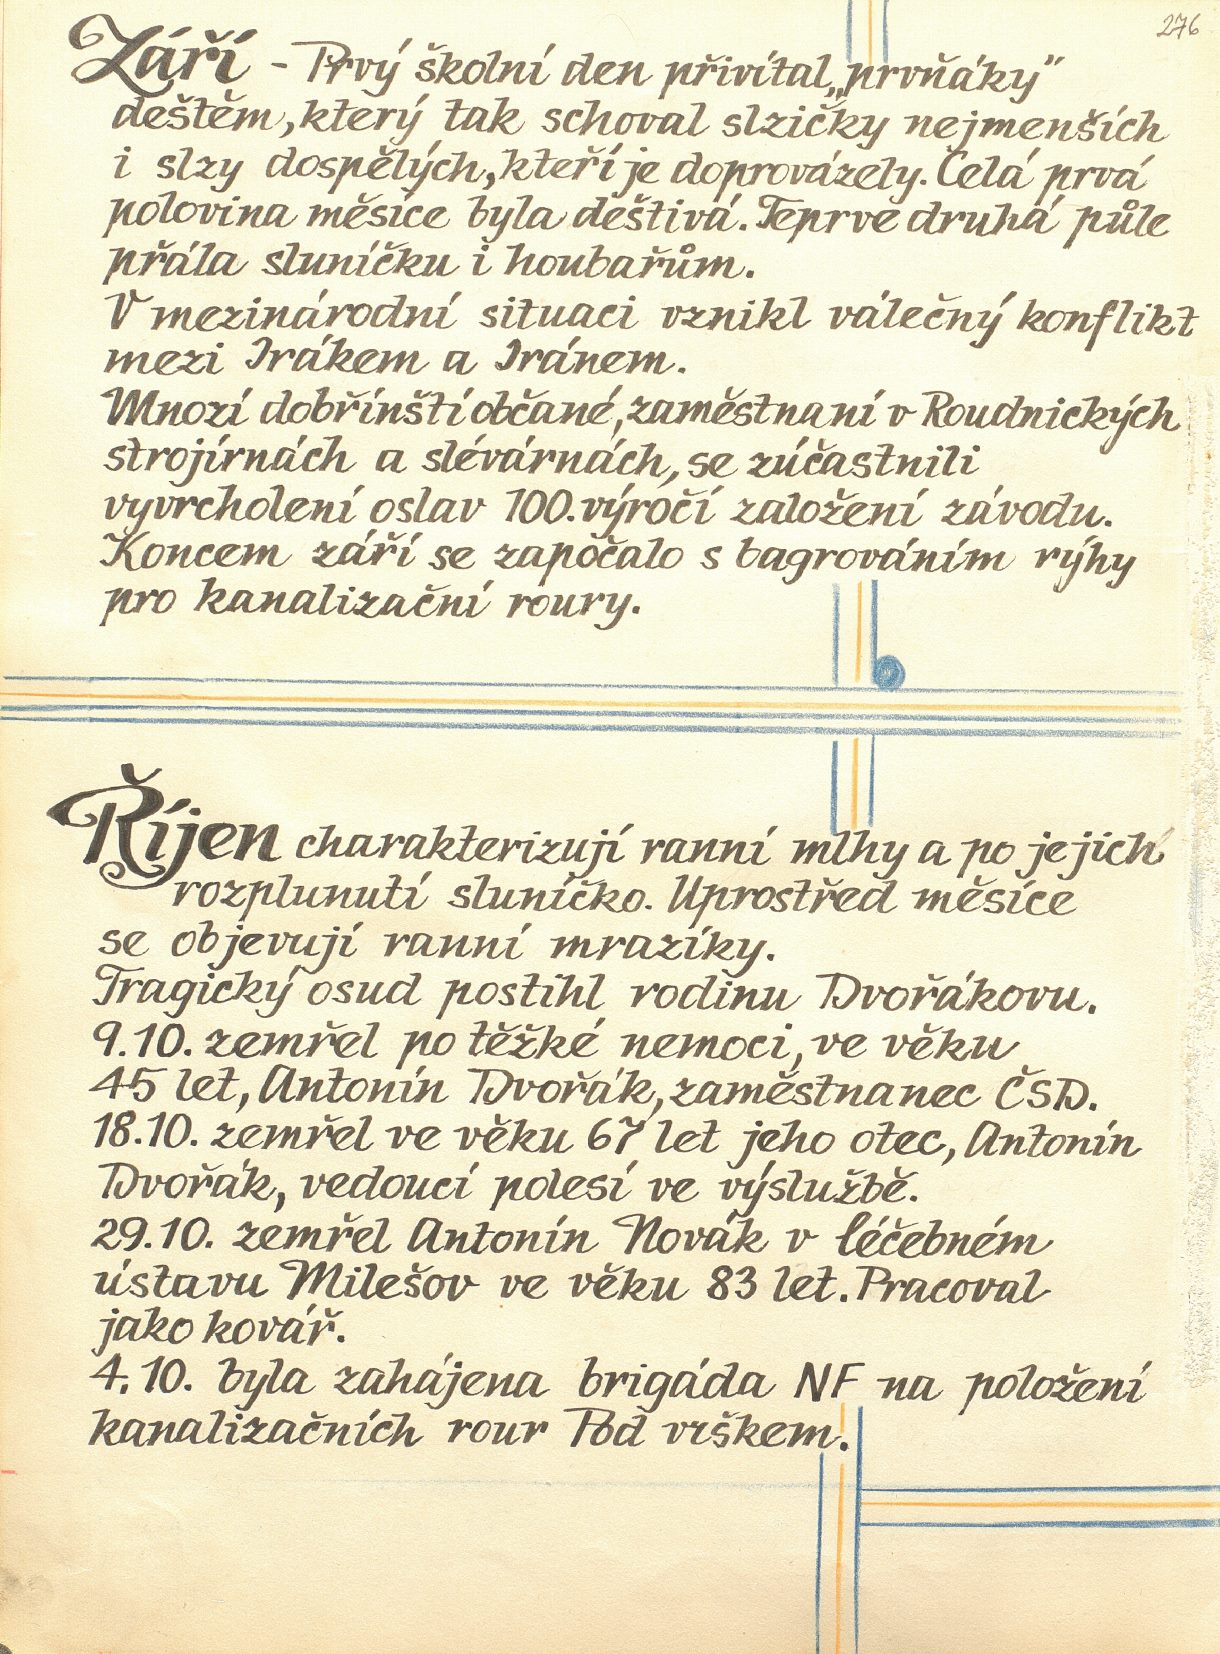 276
Září - Prvý školní den přivítal „prvňáky"
deštěm, který tak schoval slzičky nejmenších
i slzy dospělých, kteří je doprovázely. Celá prvá
polovina měsíce byla deštivá. Teprve druhá půle
přála sluníčku i houbařům.
V mezinárodní situaci vznikl válečný konflikt
mezi Irákem a Iránem.
Mnozí dobřínští občané, zaměstnaní v Roudnických
strojírnách a slévárnách, se zúčastnili
vyvrcholení oslav 100. výročí založení závodu.
Koncem září se započalo s bagrováním rýhy
pro kanalizační roury.
Říjen charakterizují ranní mlhy a po jejich
rozplunutí sluníčko. Uprostřed měsíce
se objevují ranní mrazíky.
Tragický osud postihl rodinu Dvořákovu.
9.10. zemřel po těžké nemoci, ve věku
45 let, Antonín Dvořák, zaměstnanec ČSD.
18.10. zemřel ve věku 67 let jeho otec, Antonín
Dvořák, vedoucí polesí ve výslužbě.
29.10. zemřel Antonín Novák v léčebném
ústavu Milešov ve věku 83 let. Pracoval
jako kovář.
4.10. byla zahájena brigáda NF na položení
kanalizačních rour Pod vrškem.